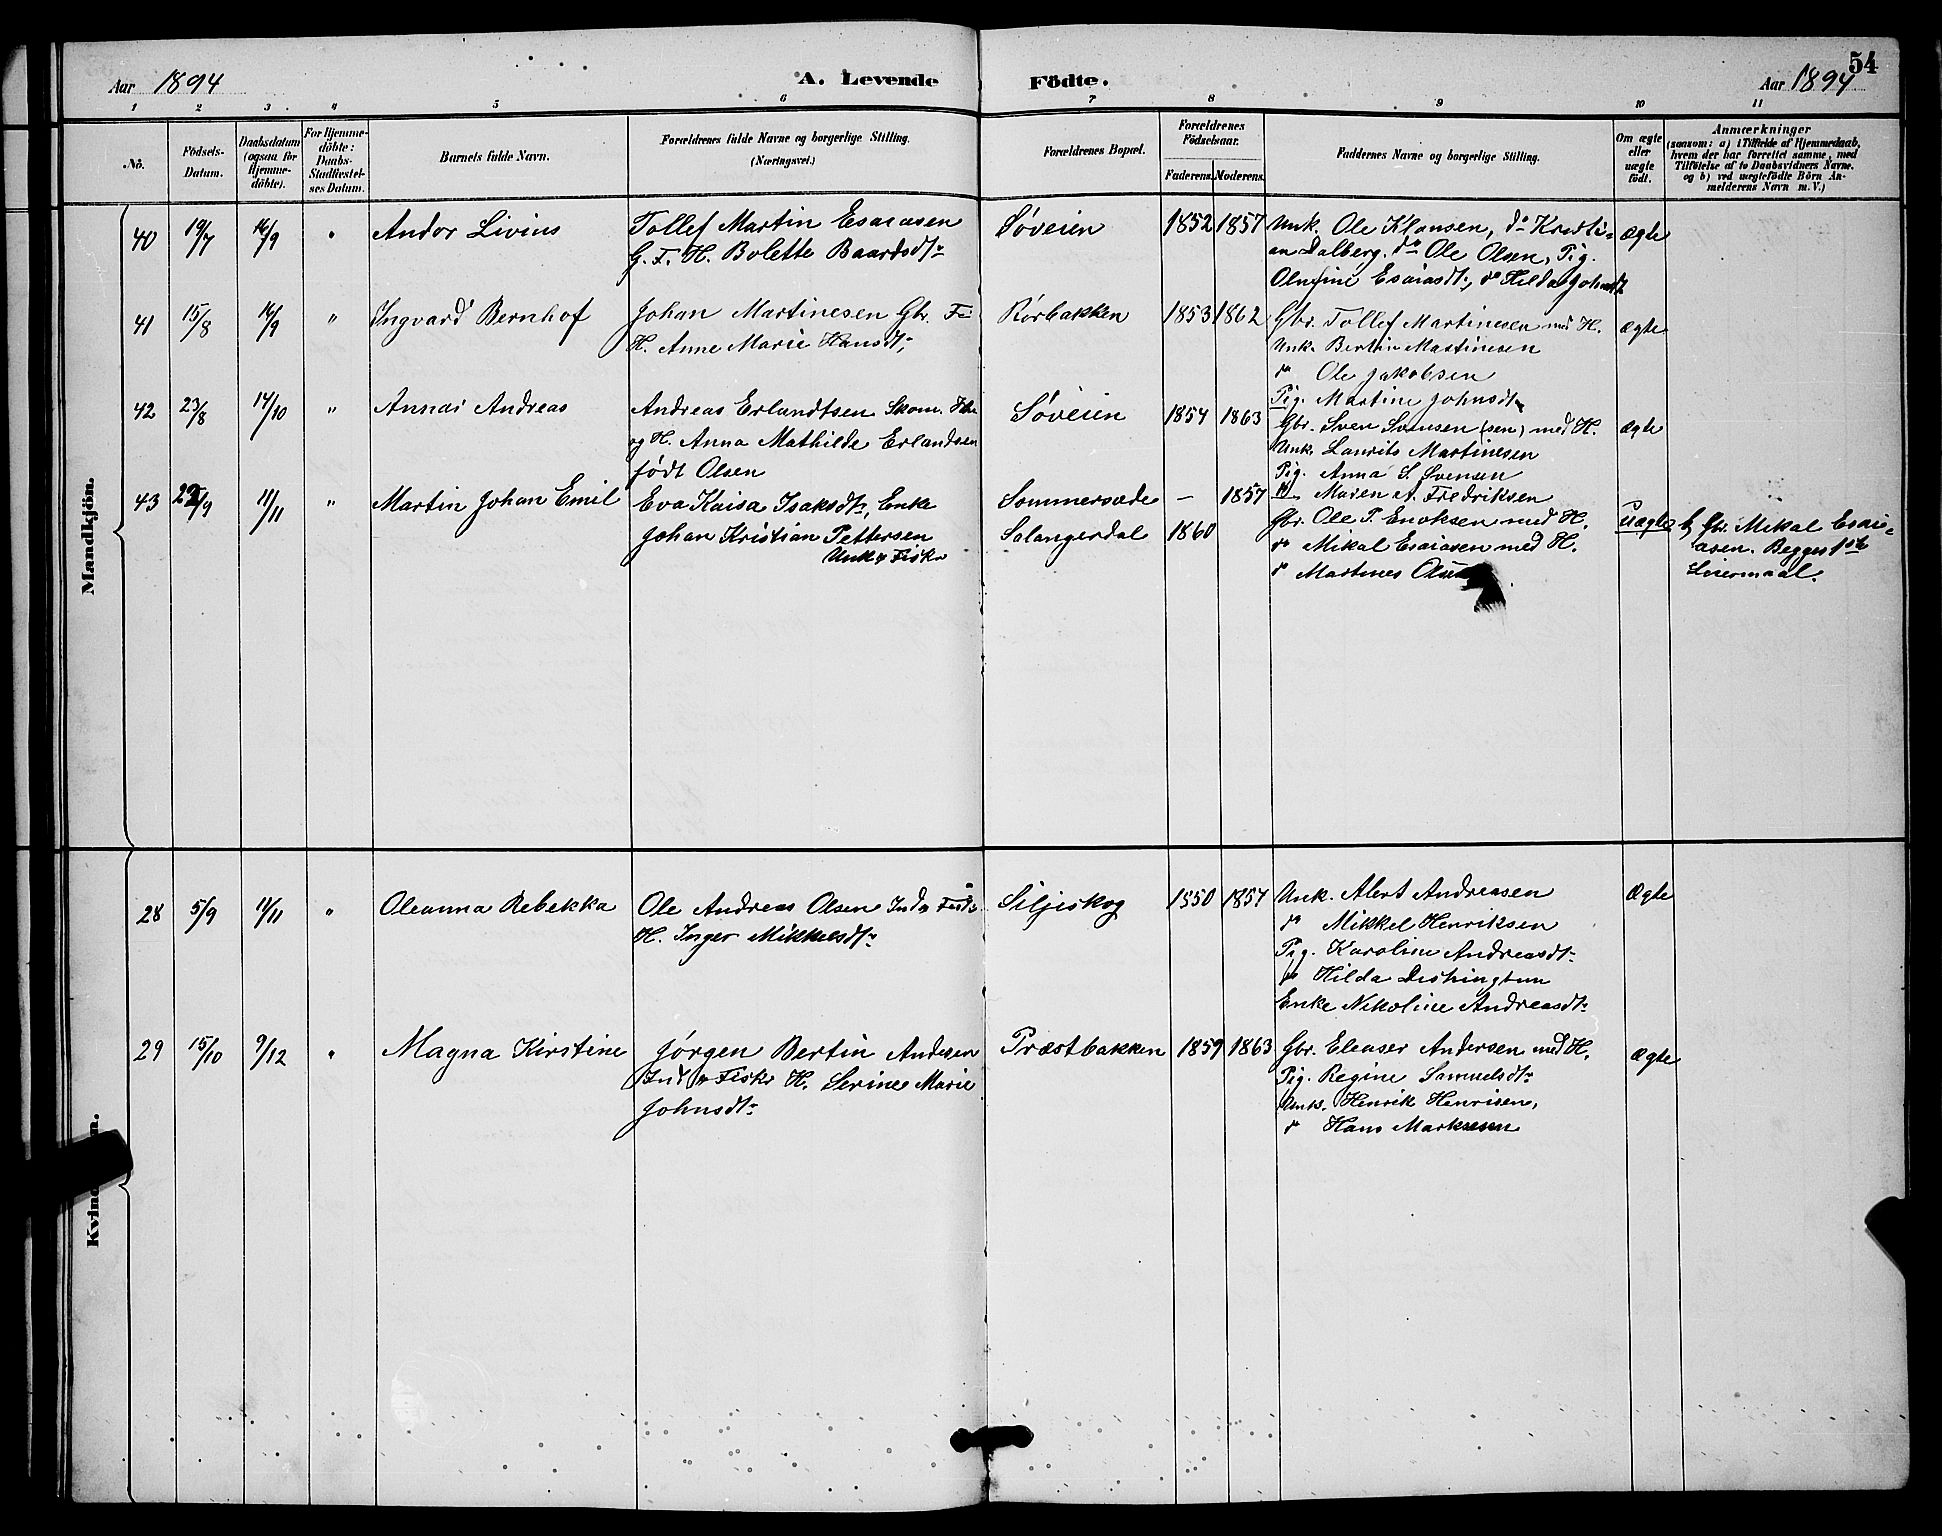 54
Aar 1894
A. Levende
Födte.
Aar 1894
1 2 3 4 5 6 7 8 9 10 11
No.
Födsels-
Datum.
Daabsdatum
(ogsaa for
Hjemme-
döbte).
For Hjemme-
döbte:
Daabs-
Stadfæstel-
ses Datum.
Barnets fulde Navn.
Forældrenes fulde Navne og borgerlige Stilling.
(Næringsvei.)
Forældrenes Bopæl.
Forældrenes
Födselsaar.
Faderens. Moderens.
Faddernes Navne og borgerlige Stilling.
Om ægte
eller
uægte
födt.
Anmærkninger
(saasom: a) i Tilfælde af Hjemmedaab,
hvem der har forrettet samme, med
Tilföielse af to Daabsvidners Navne.
og b) ved uægtefödte Börn An-
melderens Navn m. V.)
Mandkjön.
40 19/7 16/9 " Andor Livius
Tollef Martin Esaiasen
G. F. H. Bolette Baardsdt:
Søveien 1852 1857
Unk. Ole Klausen, do Kristi-
an Dalberg. do Ole Olsen, Pig.
Olufine Esaiasdt:, do Hilda Johnsdt
ægte
41 15/8 16/9 " Ingvard Bernhof
Johan Martinesen Gbr. Fi
H. Anne Marie Hansdt;
Rørbakken 1853 1862
Gbr. Tollef Martinesen med H.
Unk. Bertin Martinesen
do Ole Jakobsen
Pig. Martine Johnsdt
ægte
42 23/8 14/10 " Annar Andreas
Andreas Erlandtsen Skom.
og H. Anna Mathilde Erlandsen
født Olsen
Søveien 1854 1863
Gbr. Sven Svensen (sen) med H.
Unk. Laurits Martinesen
Pig. Anna S. Svensen
do Maren A. Fredriksen
ægte
43 22/9 11/11 " Martin Johan Emil
Eva Kaisa Isaksdt:, Enke
Johan Kristian Pettersen
Unk. Fisk.
Sommersæde - 1857
Salangerdal 1860
Gbr. Ole P. Enoksen med H.
do Mikal Esaiasen med H.
do Martines Olsen
Uægte
b, Gbr. Mikal Esai-
asen. Begges 1ste
Leiermaal.
Kvindekjön.
28 5/9 11/11 " Oleanna Rebekka
Ole Andreas Olsen Ind.
H. Inger Mikkelsdt:
Siljeskog 1850 1857
Unk. Albert Andreasen
do Mikkel Henriksen
Pig. Karoline Andreasdt:
do Hilda Dishingtun
Enke Nikoline Andreasdt:
Ægte
29 15/10 9/12 " Magna Kirstine
Jørgen Bertin Andersen
Ind. Fisker H. Serine Marie
Johnsdt:
Præstbakken 1859 1863
Gbr. Eleaser Andersen med H.
Pig. Regine Samuelsdt:
Unk. Henrik Henrisen,
do Hans Markusen
Ægte